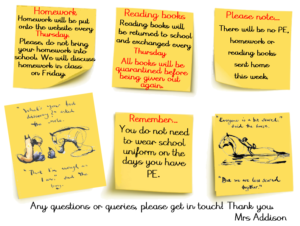 Homework
Homework will be put
onto the website every
Thursday.
Please, do not bring
your homework into
school. We will discuss
homework in class
on Friday.
Reading books
Reading books will
be returned to school
and exchanged every
Thursday.
All books will be
quarantined before
being given out
again.
Please note...
There will be no PE,
homework or
reading books
sent home
this week.
Remember...
You do not need
to wear school
uniform on the
days you have
PE.
"Everyone is a bit scared,"
said the horse.
"But we are less scared
together."
Any questions or queries, please get in touch! Thank you.
Mrs Addison